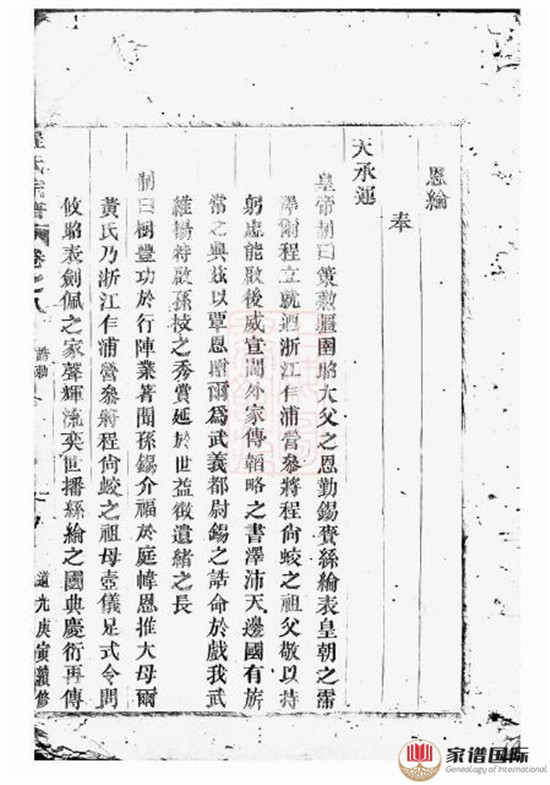 恩綸
奉
天承運
皇帝制曰策勲疆圉昭大父之恩勤錫賚絲綸表皇朝之霈
澤爾程立就迺浙江乍浦營參將程尙蛟之祖父敬以持
躬忠能啟後威宣閫外家傳韜略之書澤沛天邊國有旂
常之典茲以覃恩贈爾爲武義都尉錫之誥命於戲我武
維揚特啟孫枝之秀賞延於世益徵遺緒之長
制曰樹豐功於行陣業著聞孫錫介福於庭幃恩推大母爾
黃氏乃浙江乍浦營參將程尙蛟之祖母壼儀足式令問
攸昭表劍佩之家聲輝流奕世播絲綸之國典慶衍再傳
程氏宗譜 卷之八 誥勅
道光庚寅續修
家谱国际
Genealogy of International